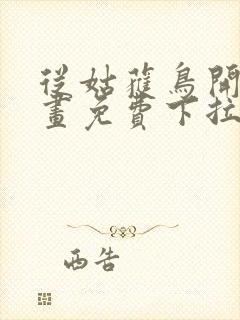 從姑獲鳥開
畫免費下拉
西告